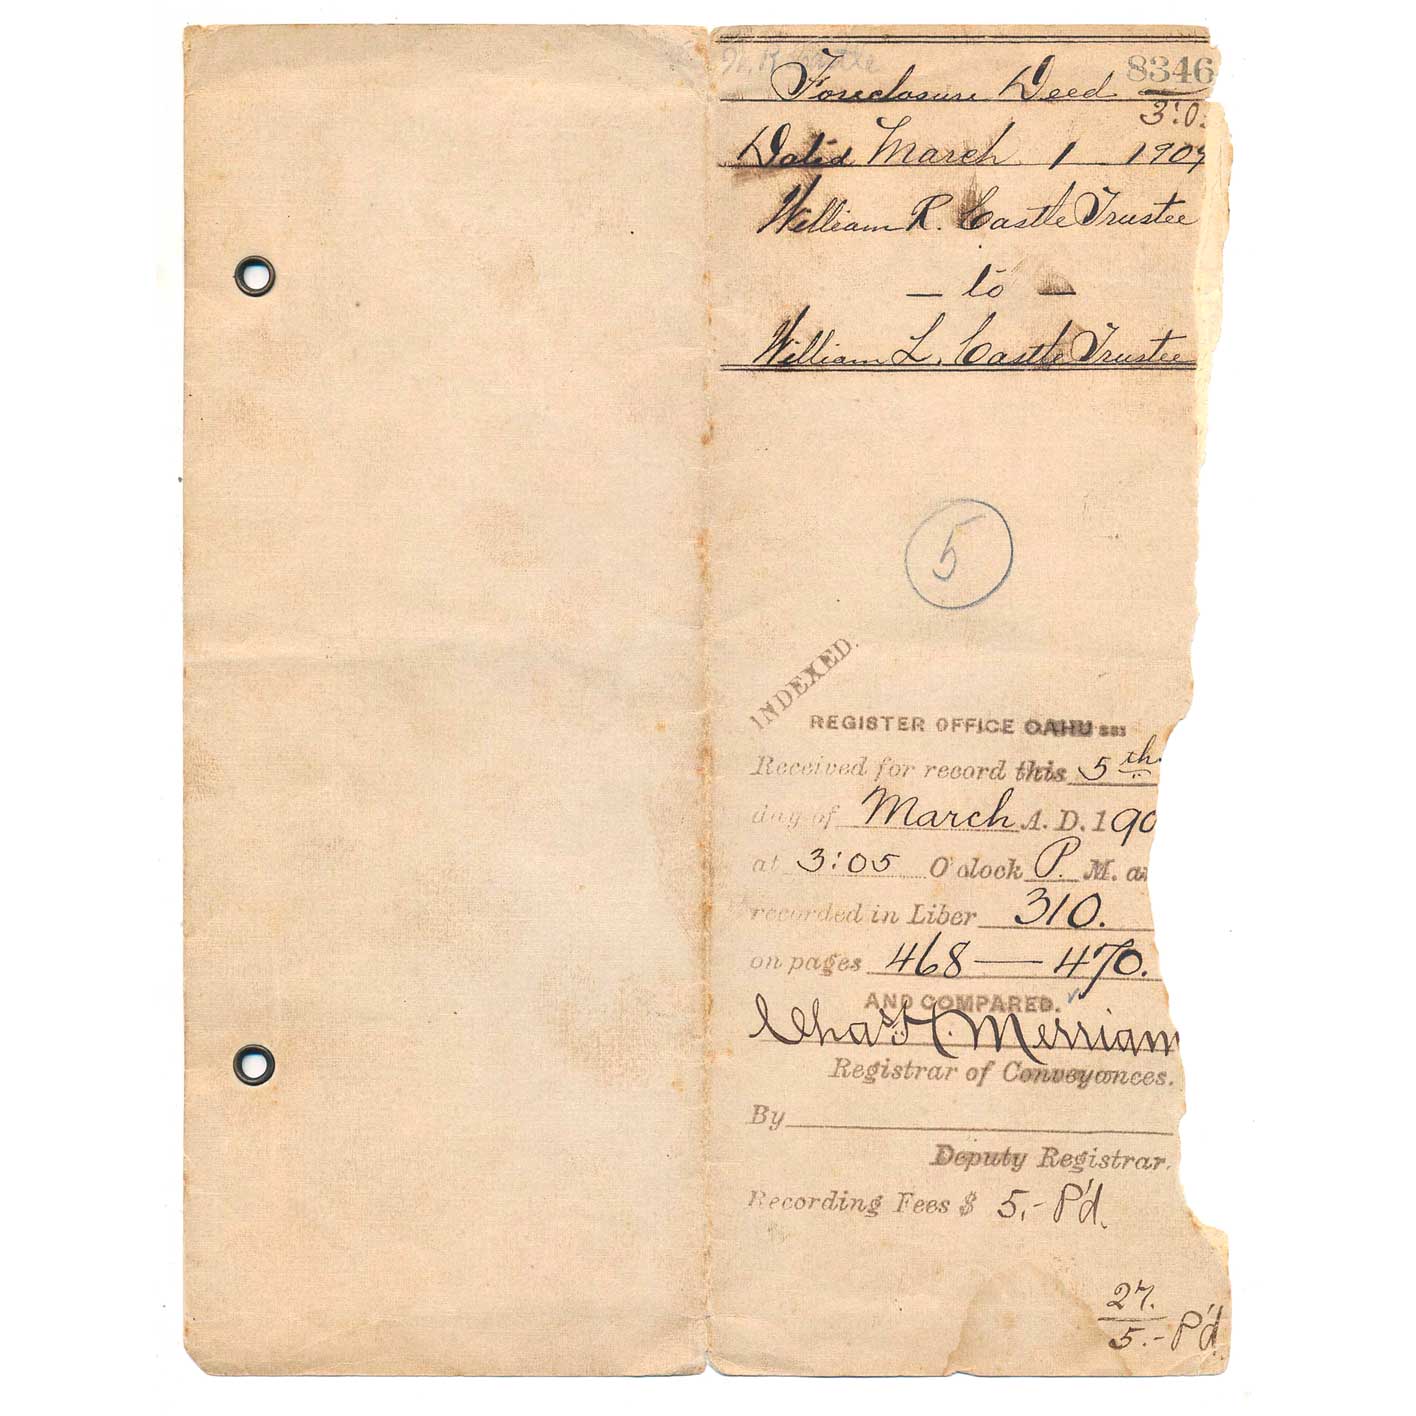 W. R. Castle
Foreclosure Deed 8346
3:0
Dated March 1 1909
William R. Castle Trustee
— to —
William L. Castle Trustee
5
INDEXED.
REGISTER OFFICE OAHU SS:
Received for record this 5th
day of March A. D. 190
at 3:05 O'clock P. M. a
recorded in Liber 310.
on pages 468 — 470.
AND COMPARED.
Chas H. Merriam
Registrar of Conveyances.
By
Deputy Registrar.
Recording Fees $ 5.- P'd.
27.
5.- P'd.